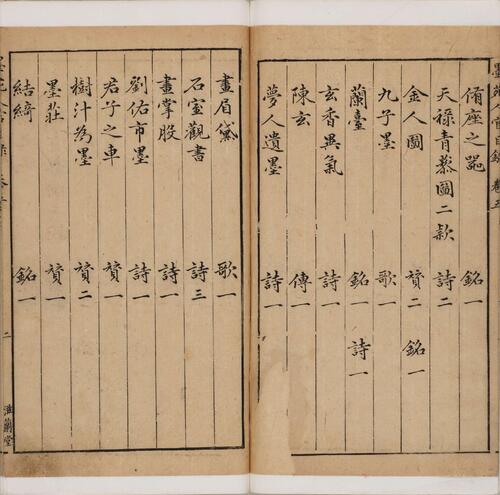 脩座之器 銘一
天祿青藜圖二款 詩二
金人圖 贊二 銘一
九子墨 歌一
蘭臺 銘一 詩一
玄香異氣 詩一
陳玄 傳一
夢人遺墨 詩一
畫眉黛 歌一
石室觀書 詩三
畫掌股 詩一
劉佑市墨 詩一
君子之車 贊一
樹汁為墨 贊二
墨莊 贊一
結綺 銘一
二